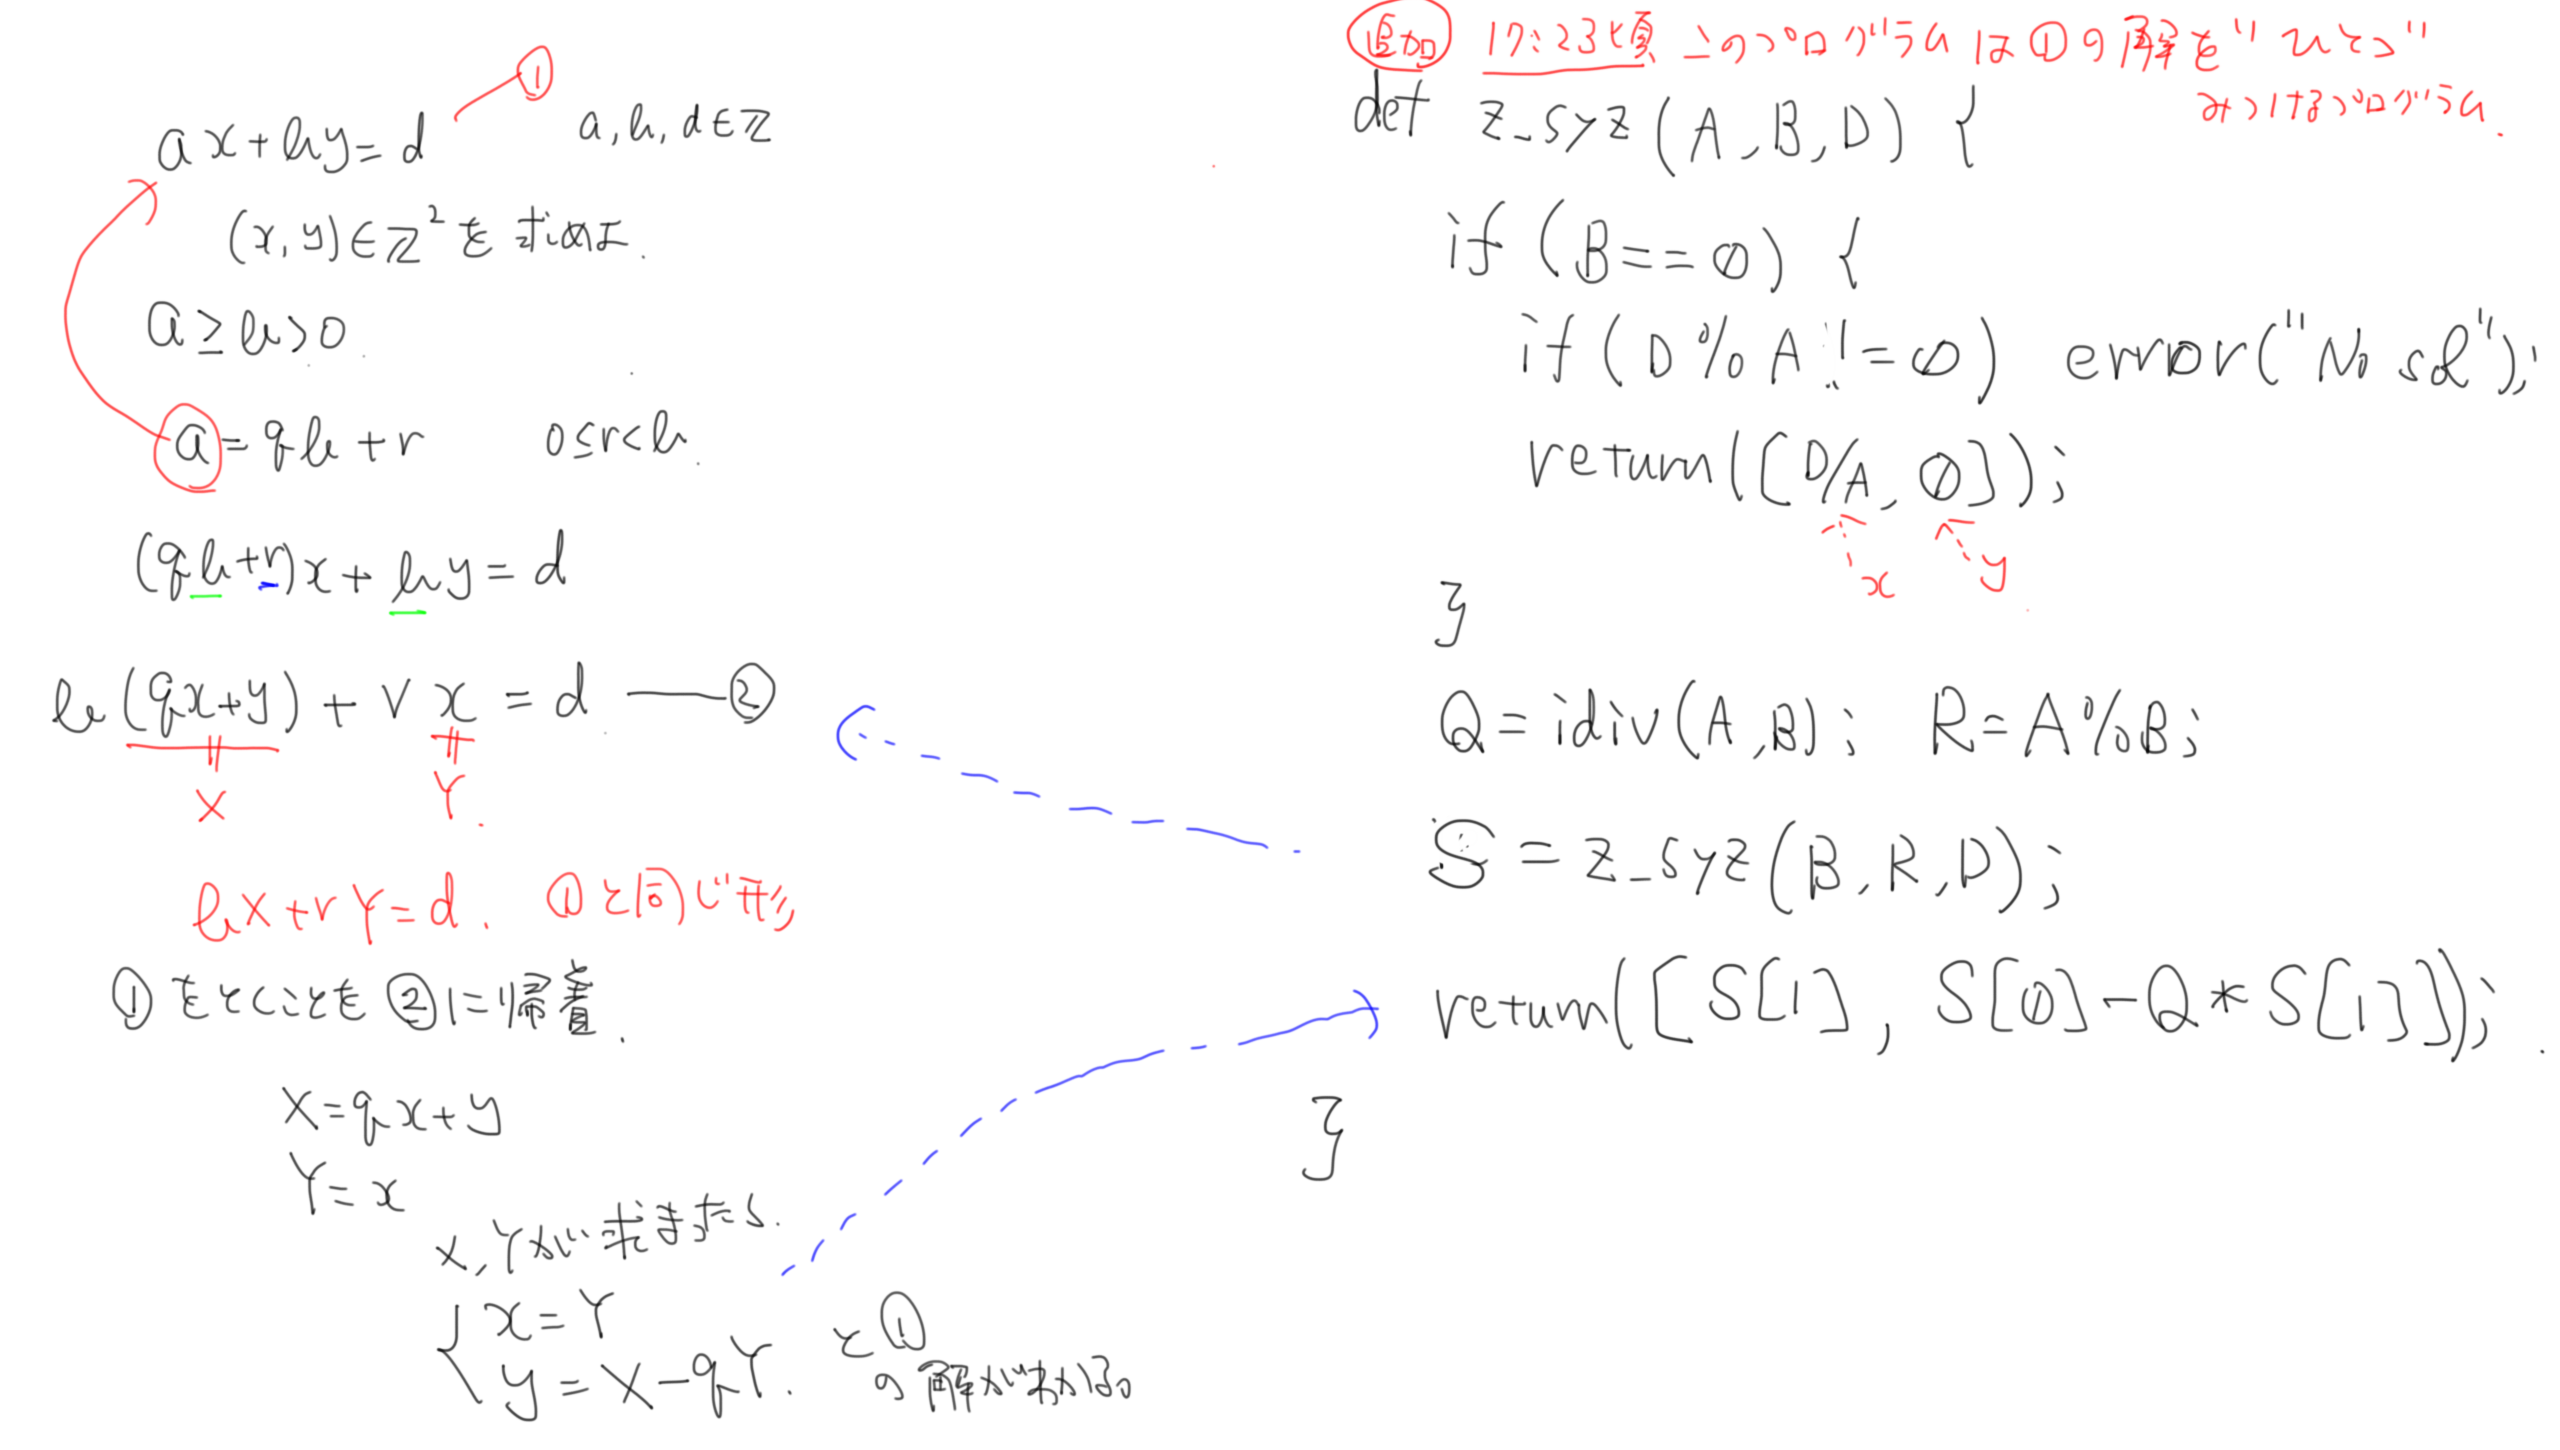 ax+by=d ① a,b,d∈ℤ
(x,y)∈ℤ²を求めよ.
a≥b>0.
a=qb+r 0≤r<b.
(qb+r)x+by=d
b(qx+y)+rx=d ―②
X Y.
bX+rY=d. ①と同じ形
①をとくことを②に帰着.
X=qx+y
Y=x
X,Yが求まったら.
{x=Y
y=X-qY. と①
の解がわかる。
追加 17:23頃 このプログラムは①の解を"ひとつ"
みつけるプログラム.
def z_syz(A,B,D) {
if (B==0) {
if(D%A!=0) error("No sol");
return([D/A,0]);
x y
}
Q=idiv(A,B); R=A%B;
S=z_syz(B,R,D);
return([S[1],S[0]-Q*S[1]]);
}